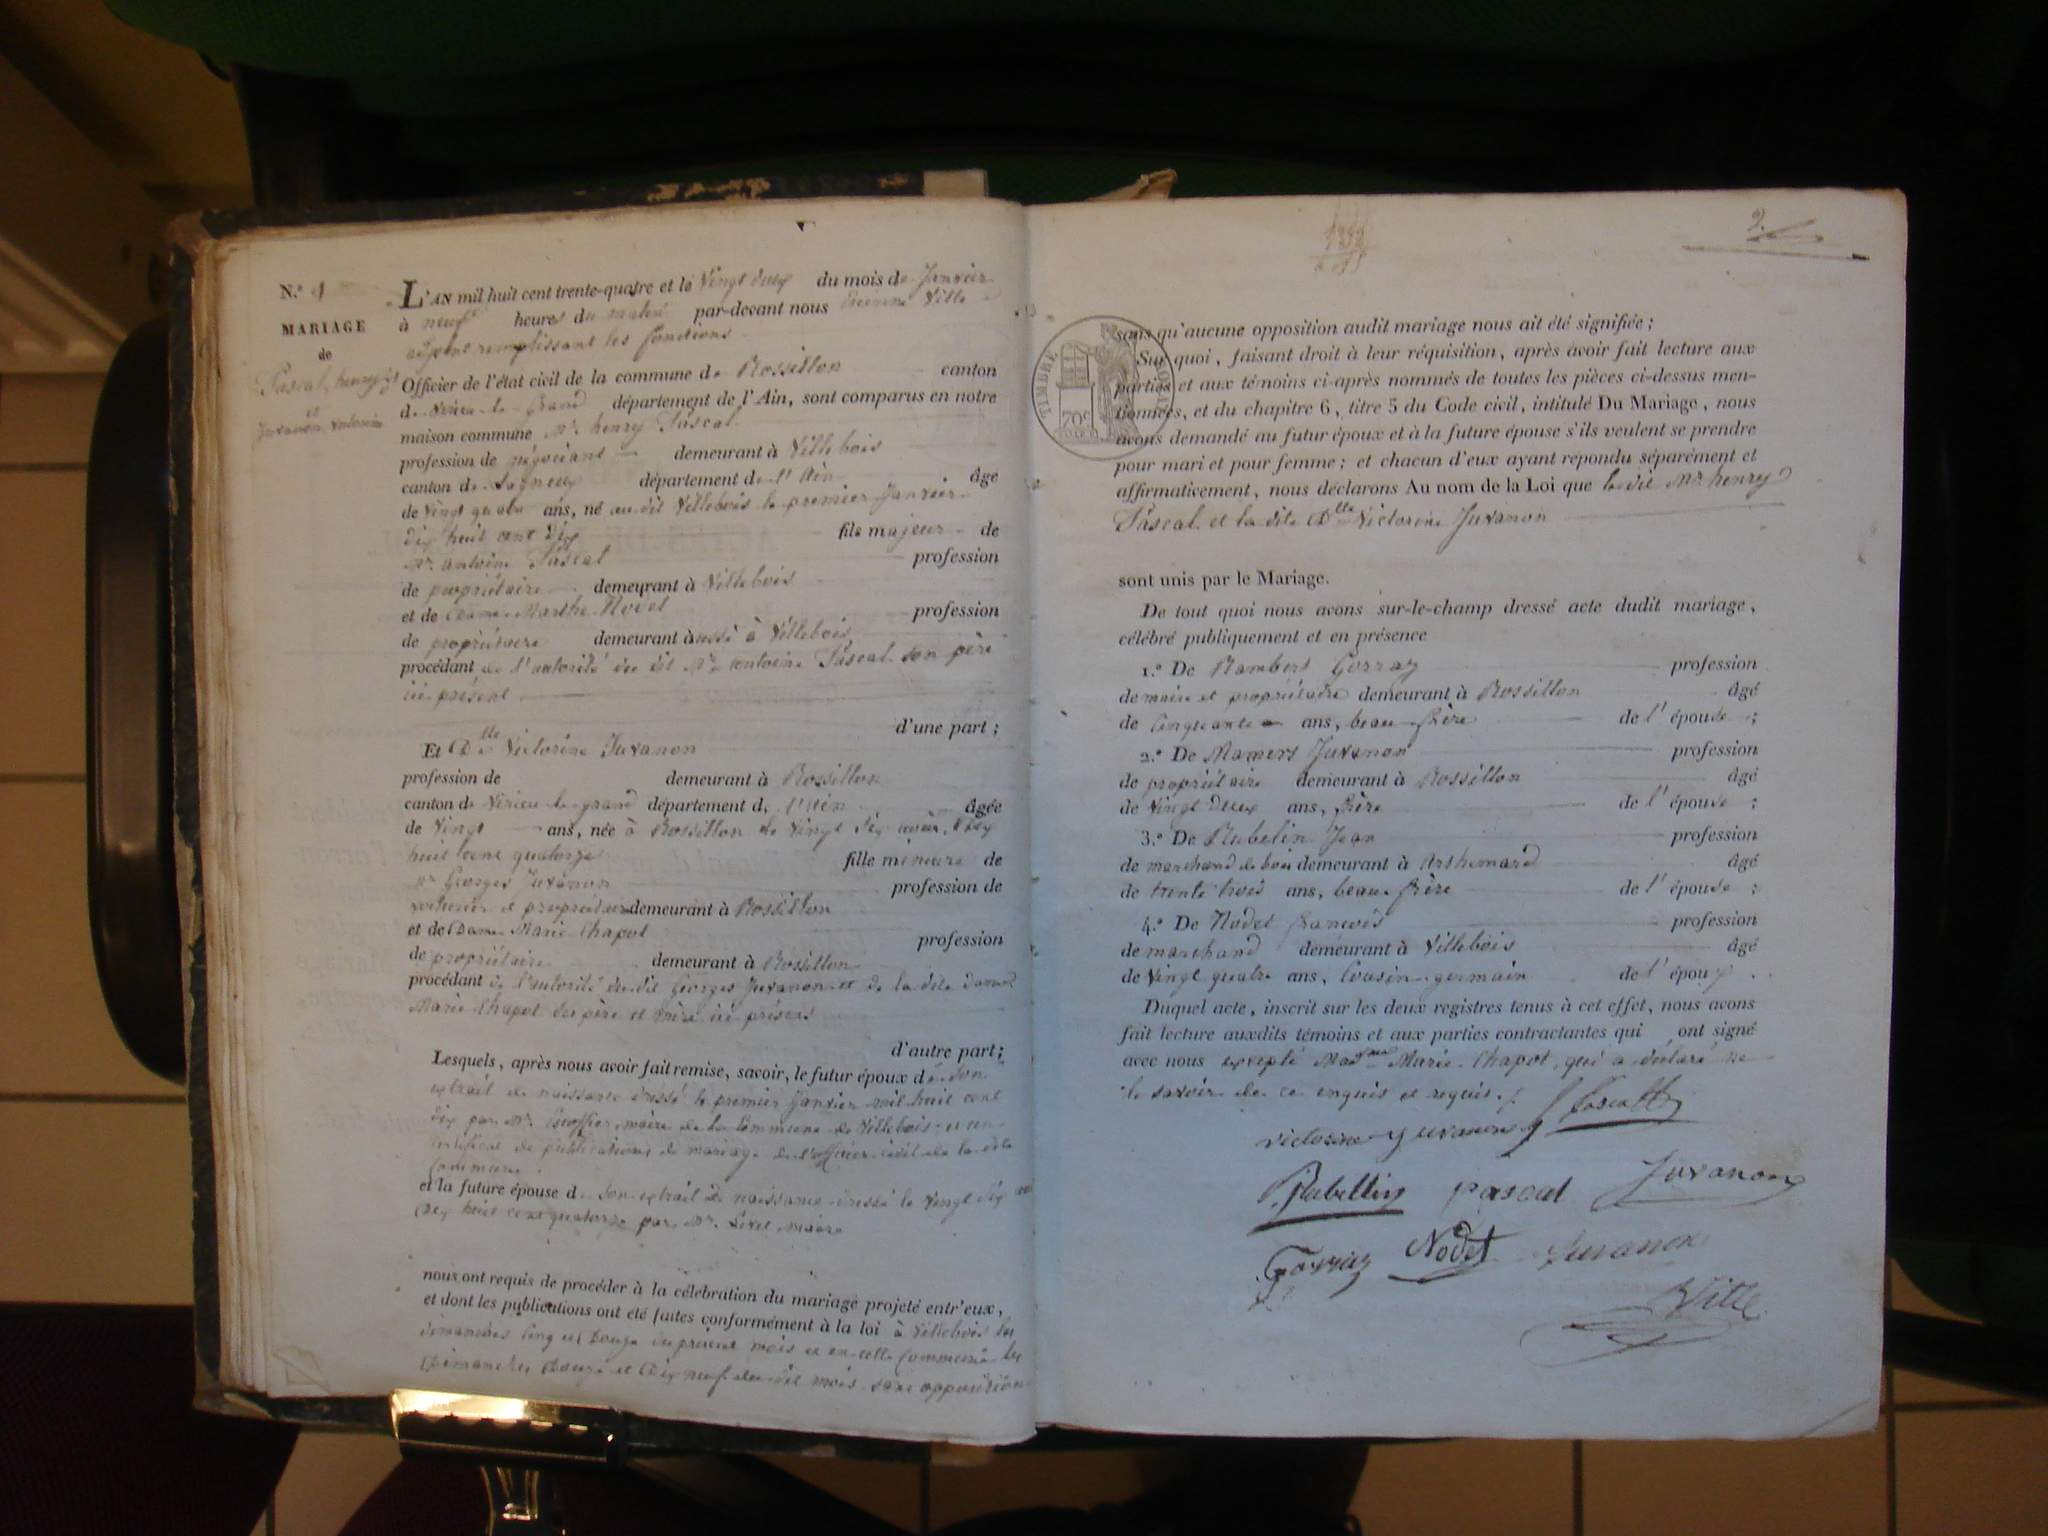 N.º 1
MARIAGE
de
Pascal, henry
et
Juvanon, victorine
L'AN mil huit cent trente-quatre et le Vingt deux du mois de Janvier
à neuf heures du matin par-devant nous Ville
remplissant les fonctions
Officier de l'état civil de la commune de Rossillon canton
de Virieu le Grand département de l'Ain, sont comparus en notre
maison commune Mr. henry Pascal
profession de négociant demeurant à Villebois
canton de Lagneux département de l'Ain âgé
de Vingt quatre ans, né au dit Villebois le premier Janvier
dix huit cent dix fils majeur de
Mr. antoine Pascal profession
de propriétaire demeurant à Villebois
et de Dame Marthe Nodet profession
de propriétaire demeurant aussi à Villebois
procédant de l'autorité du dit Mr. antoine Pascal son père
ici présent
d'une part ;
Et Dlle Victorine Juvanon
profession de demeurant à Rossillon
canton de Virieu le grand département de l'Ain âgée
de Vingt ans, née à Rossillon le Vingt six août, dix
huit cent quatorze fille mineure de
Mr Georges Juvanon profession de
voiturier et propriétaire demeurant à Rossillon
et de Dame Marie Chapot profession
de propriétaire demeurant à Rossillon
procédant de l'autorité du dit Georges Juvanon et de la dite dame
Marie Chapot ses père et mère ici présens
d'autre part ;
Lesquels, après nous avoir fait remise, savoir, le futur époux de son
extrait de naissance dressé le premier Janvier mil huit cent
dix par Mr. maire de la Commune de Villebois et un
certificat de publications de mariage de l'officier civil de la dite
Commune.
et la future épouse de son extrait de naissance dressé le vingt six
dix huit cent quatorze par Mr. maire
nous ont requis de procéder à la célébration du mariage projeté entr'eux,
et dont les publications ont été faites conformément à la loi à Villebois les
dimanches cinq et douze du présent mois et en cette Commune les
Dimanches douze et dix neuf du dit mois, sans opposition
2.
sans qu'aucune opposition audit mariage nous ait été signifiée ;
Sur quoi, faisant droit à leur réquisition, après avoir fait lecture aux
parties et aux témoins ci-après nommés de toutes les pièces ci-dessus men-
tionnées, et du chapitre 6, titre 5 du Code civil, intitulé Du Mariage, nous
avons demandé au futur époux et à la future épouse s'ils veulent se prendre
pour mari et pour femme ; et chacun d'eux ayant répondu séparément et
affirmativement, nous déclarons Au nom de la Loi que le dit Mr. henry
Pascal et la dite Dlle Victorine Juvanon
TIMBRE ROYAL
70c
sont unis par le Mariage.
De tout quoi nous avons sur-le-champ dressé acte dudit mariage,
célébré publiquement et en présence
1.º De Rambert Gorraz profession
de maire et propriétaire demeurant à Rossillon âgé
de Cinquante ans, beau-frère de l'épouse ;
2.º De Mamers Juvanon profession
de propriétaire demeurant à Rossillon âgé
de Vingt deux ans, frère de l'épouse ;
3.º De Rubelin Jean profession
de marchand de bois demeurant à Arshemard âgé
de trente trois ans, beau-frère de l'épouse ;
4.º De Nodet françois profession
de marchand demeurant à Villebois âgé
de Vingt quatre ans, Cousin germain de l'époux.
Duquel acte, inscrit sur les deux registres tenus à cet effet, nous avons
fait lecture auxdits témoins et aux parties contractantes qui ont signé
avec nous excepté Madme Marie Chapot, qui a déclaré ne
le savoir de ce enquis et requis.
Pascal
victorine juvanon
Rubellin pascal Juvanon
Gorraz Nodet Juvanon
Ville